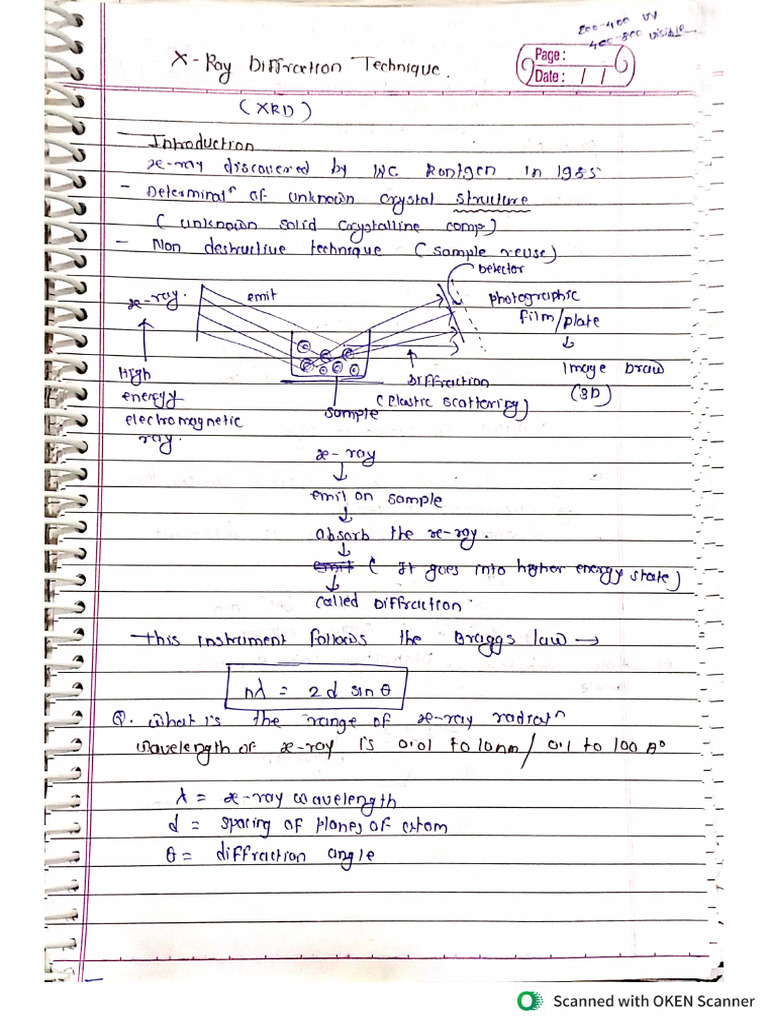 200-400 UV
400-800 visible
X-Ray Diffraction Technique.
Page:
Date: / /
(XRD)
- Introduction
x-ray discovered by WC Rontgen in 1985
- Determinatn of unknown crystal structure
( unknown solid crystalline comp)
- Non destructive technique (sample reuse)
Detector
x-ray.
emit
photographic
film/plate
High
energy
electromagnetic
ray.
Diffraction
(elastic scattering)
sample
image draw
(3D)
x-ray
emit on sample
absorb the x-ray.
emit ( It goes into higher energy state)
called Diffraction
This instrument follows the Braggs law →
nλ = 2d sinθ
Q. What is the range of x-ray radiatn
wavelength of x-ray is 0.01 to 10nm/ 0.1 to 100 A°
λ = x-ray wavelength
d = spacing of planes of atom
θ = diffraction angle
Scanned with OKEN Scanner